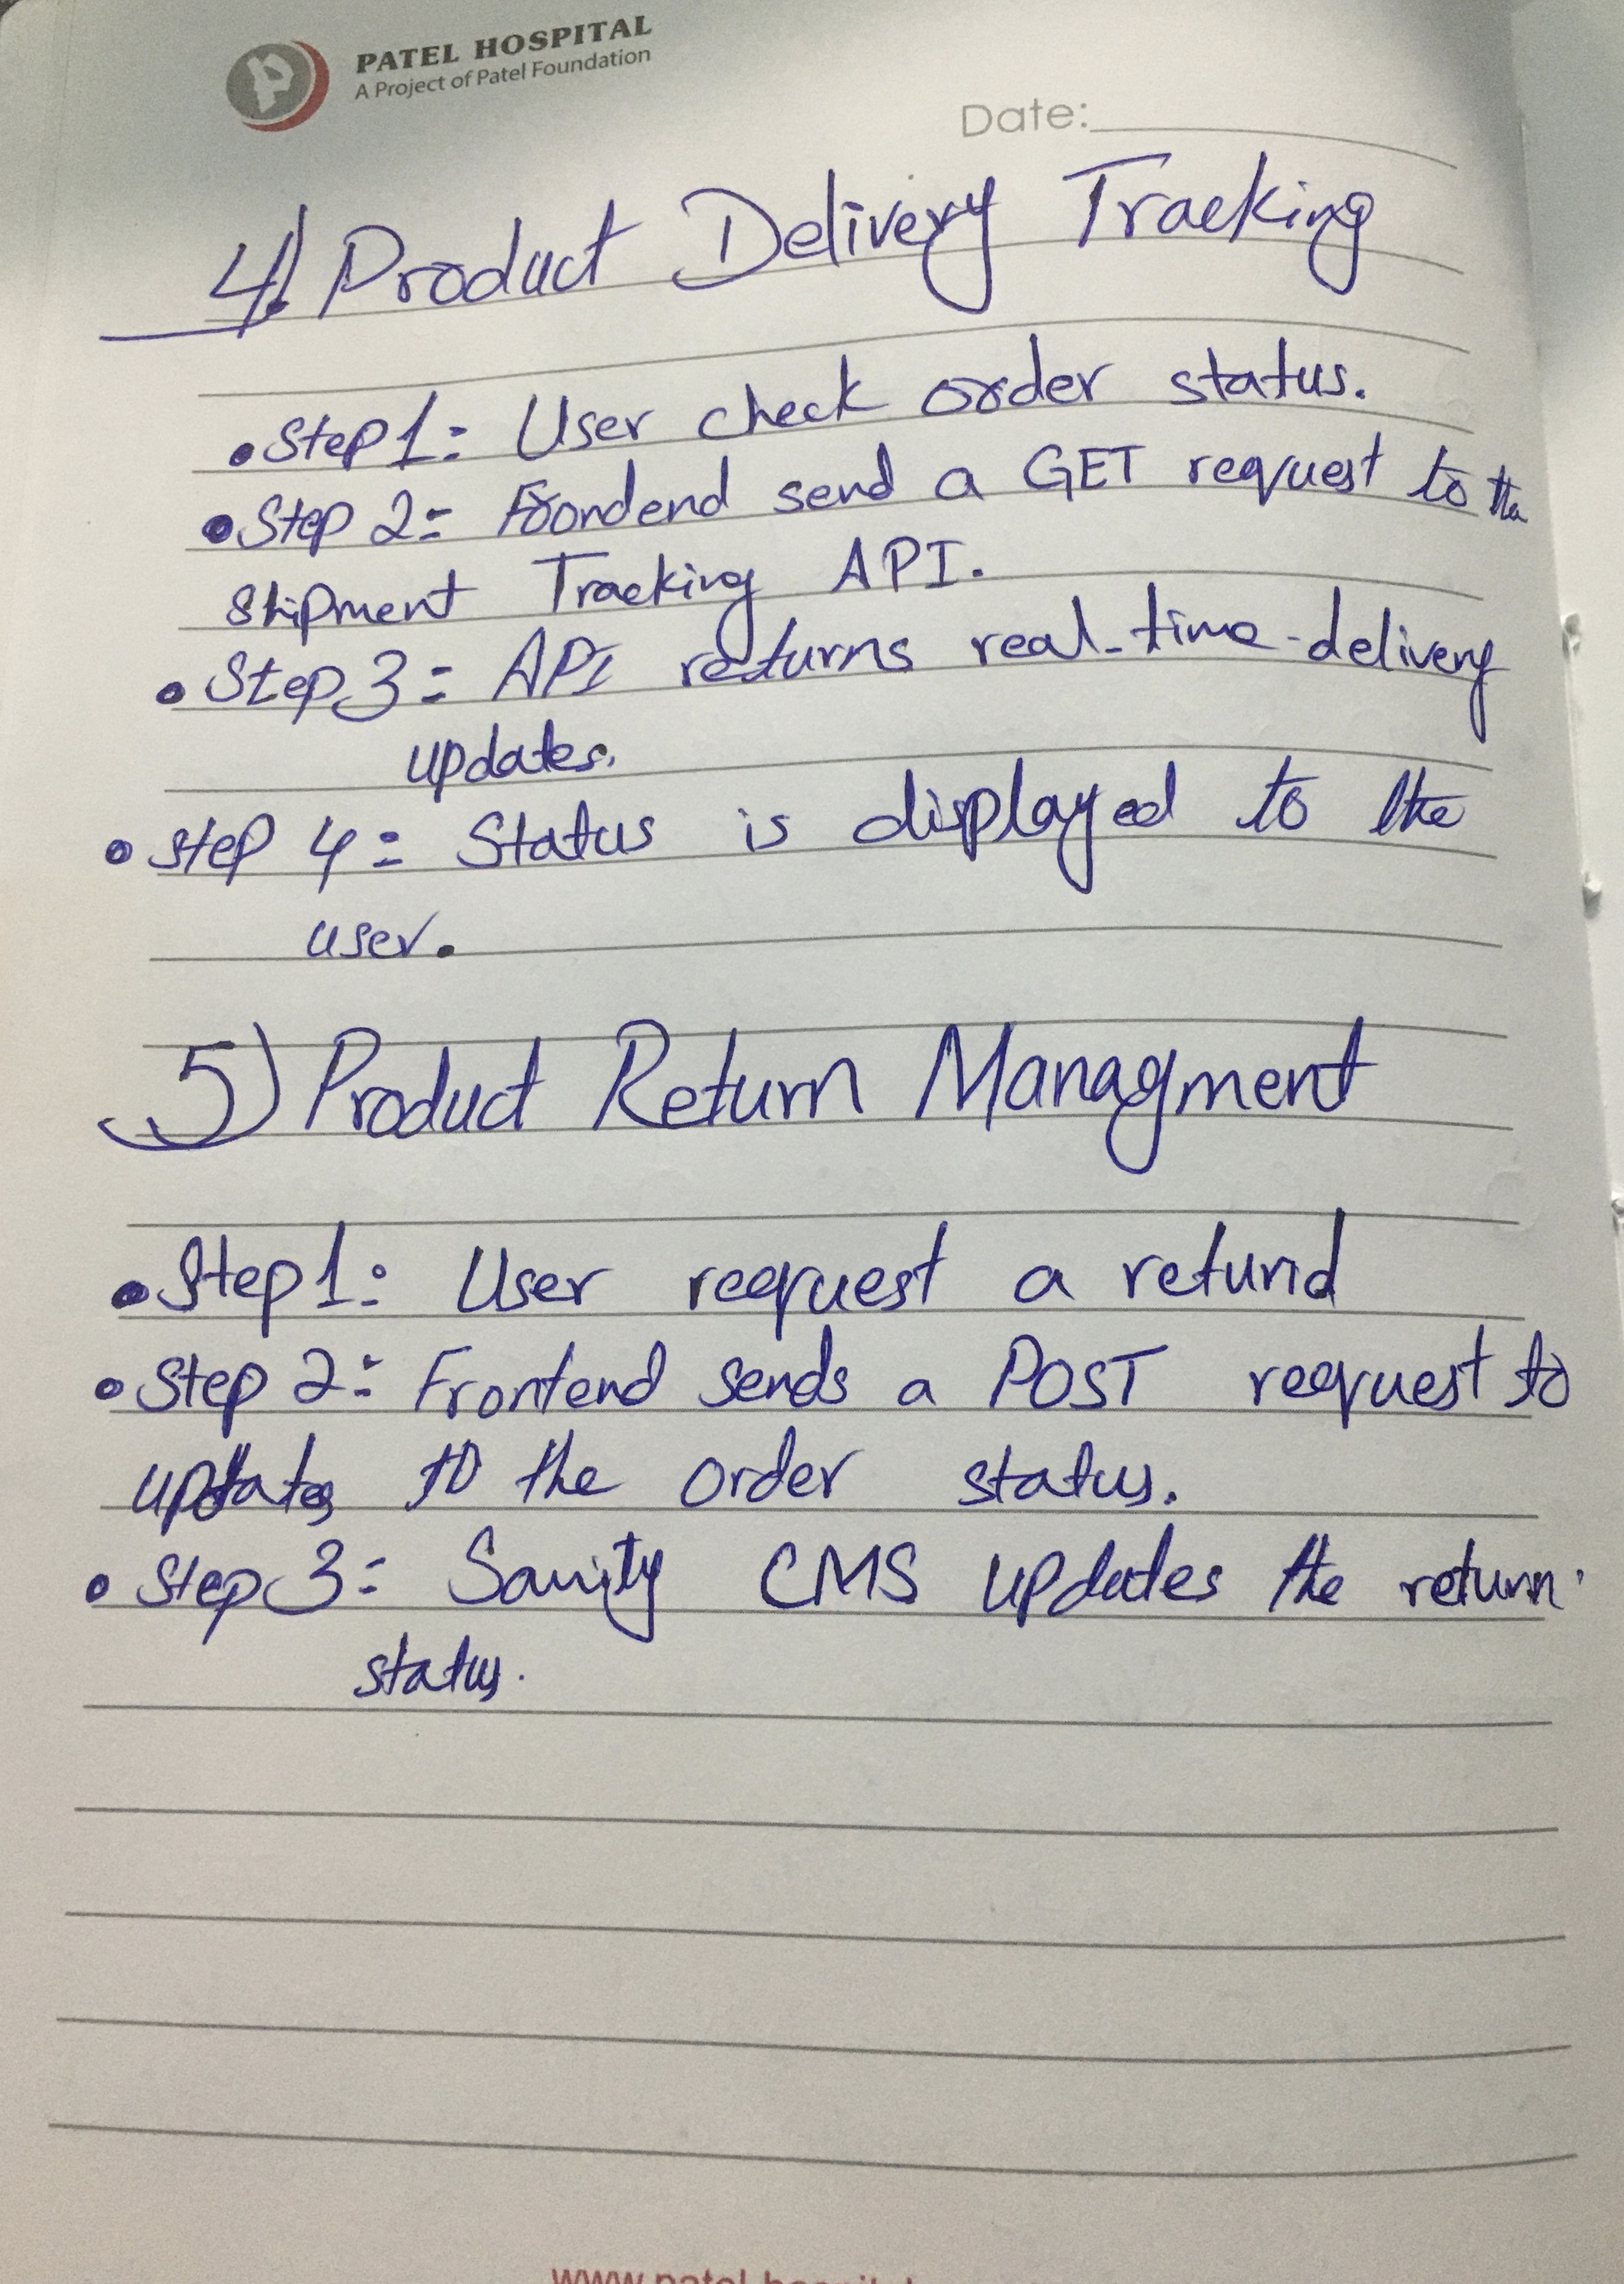 PATEL HOSPITAL
A Project of Patel Foundation
Date:
4) Product Delivery Tracking
• Step 1: User check order status.
• Step 2: Frondend send a GET request to the
Shipment Tracking API.
• Step 3: API returns real-time-delivery
updates.
• Step 4: Status is displayed to the
user.
5) Product Return Managment
• Step 1: User request a refund
• Step 2: Frontend sends a POST request to
updates to the order status.
• Step 3: Sanity CMS updates the return
status.